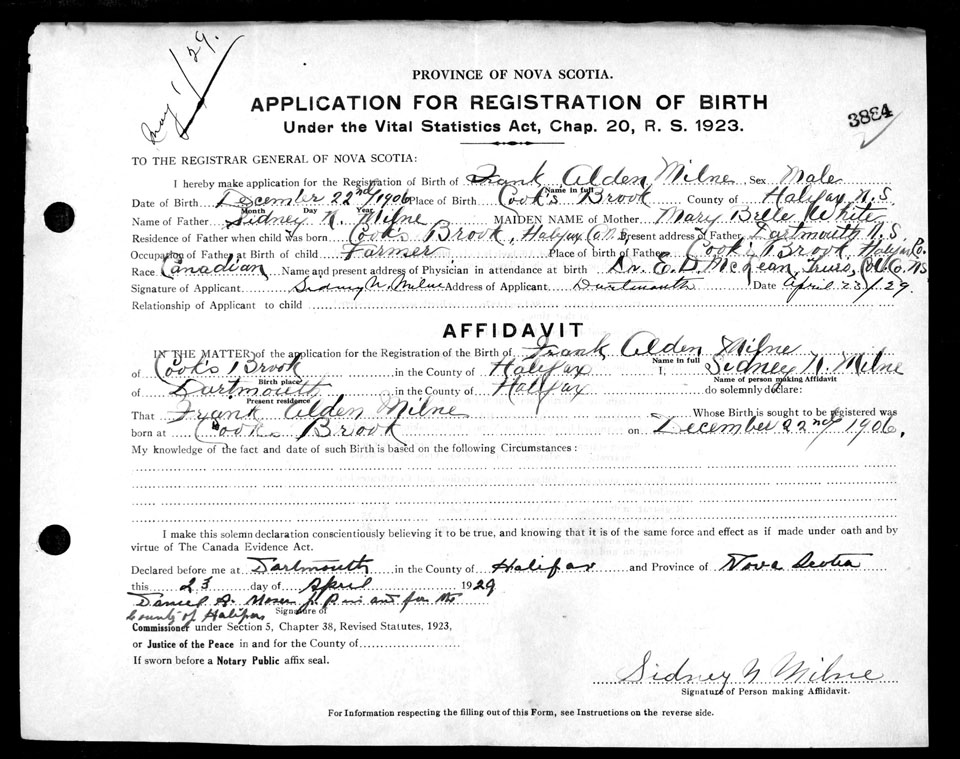 May 1/29.
PROVINCE OF NOVA SCOTIA.
APPLICATION FOR REGISTRATION OF BIRTH
Under the Vital Statistics Act, Chap. 20, R. S. 1923.
3884
TO THE REGISTRAR GENERAL OF NOVA SCOTIA:
I hereby make application for the Registration of Birth of Frank Alden Milne Sex Male
Name in full
Date of Birth December 22nd/1906 Place of Birth Cook's Brook County of Halifax N.S.
Month Day Year
Name of Father Sidney N. Milne MAIDEN NAME of Mother Mary Belle White
Residence of Father when child was born Cook's Brook, Halifax Co. N.S. Present address of Father Dartmouth N.S.
Occupation of Father at Birth of child Farmer Place of birth of Father Cook's Brook Halifax Co.
Race Canadian Name and present address of Physician in attendance at birth Dr. E. D. McLean, Truro, Col. Co. NS
Signature of Applicant Sidney N. Milne Address of Applicant Dartmouth Date April 23/29.
Relationship of Applicant to child
AFFIDAVIT
IN THE MATTER of the application for the Registration of the Birth of Frank Alden Milne
Name in full
of Cook's Brook in the County of Halifax I, Sidney N. Milne
Birth place Name of person making Affidavit
of Dartmouth in the County of Halifax do solemnly declare:
Present residence
That Frank Alden Milne Whose Birth is sought to be registered was
born at Cook's Brook on December 22nd/1906.
My knowledge of the fact and date of such Birth is based on the following Circumstances:
I make this solemn declaration conscientiously believing it to be true, and knowing that it is of the same force and effect as if made under oath and by
virtue of The Canada Evidence Act.
Declared before me at Dartmouth in the County of Halifax and Province of Nova Scotia
this 23 day of April 1929
Daniel A. Moser J. P. in and for the
County of Halifax
Signature of
Commissioner under Section 5, Chapter 38, Revised Statutes, 1923,
or Justice of the Peace in and for the County of
If sworn before a Notary Public affix seal.
Sidney N Milne
Signature of Person making Affidavit.
For Information respecting the filling out of this Form, see Instructions on the reverse side.